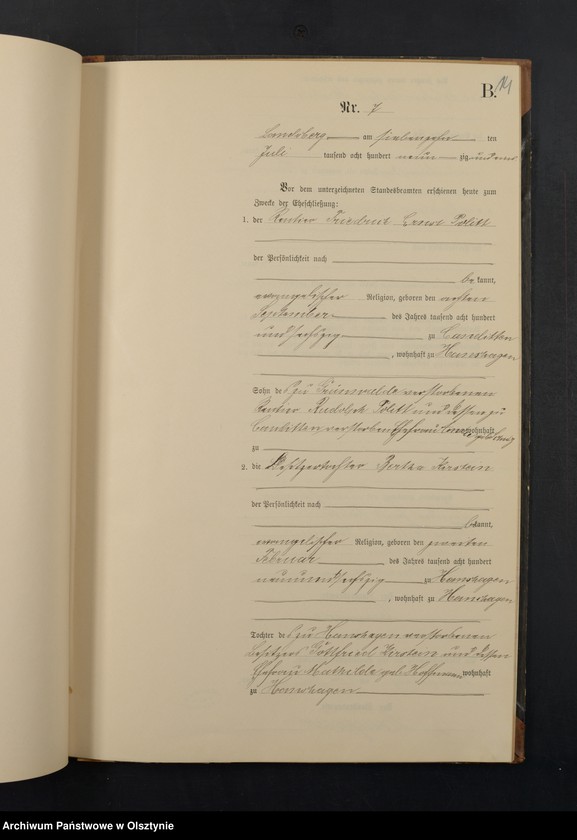 B. 14
Nr. 7
Landsberg am siebenzehn ten
Juli tausend acht hundert neun zig und
Vor dem unterzeichneten Standesbeamten erschienen heute zum
Zwecke der Eheschließung:
1. der Rentier Friedrich Ernst Politt
der Persönlichkeit nach
be kannt,
evangelischer Religion, geboren den
September des Jahres tausend acht hundert
und sechszig zu Canditten
, wohnhaft zu Hanshagen
Sohn des zu Grünwalde verstorbenen
Rentier Rudolph Politt und dessen zu
Canditten verstorbenen Ehefrau wohnhaft
zu
2. die Besitzertochter Bertha Kirstein
der Persönlichkeit nach
be kannt,
evangelischer Religion, geboren den zweiten
Februar des Jahres tausend acht hundert
neunundsechszig zu Hanshagen
, wohnhaft zu Hanshagen
Tochter des zu Hanshagen verstorbenen
Besitzers Gottfried Kirstein und dessen
Ehefrau Mathilde geb. Hoffmann wohnhaft
zu Hanshagen
Archiwum Państwowe w Olsztynie